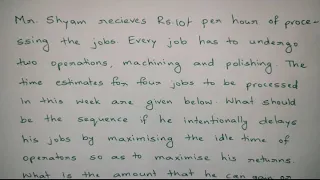 Mr. Shyam recieves Rs.10/- per hour of proce-
ssing the jobs. Every job has to undergo
two operations, machining and polishing. The
time estimates for four jobs to be processed
in this week are given below. What should
be the sequence if he intentionally delays
his jobs by maximising the idle time of
operators so as to maximise his returns.
What is the amount that he can gain or